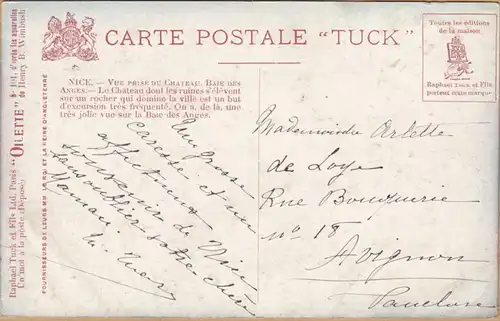 CARTE POSTALE "TUCK"
Toutes les éditions
de la maison
Raphael Tuck et Fils
portent cette marque
NICE. — VUE PRISE DU CHATEAU. BAIE DES
ANGES. — Le Château dont les ruines s'élèvent
sur un rocher qui domine la ville est un but
d'excursion très fréquenté. On a, de là, une
très jolie vue sur la Baie des Anges.
Raphael Tuck et Fils Ltd, Paris "OILETTE"
Un mot à la poste (déposé)
d'après les aquarelles
de Henry B. Wimbush
FOURNISSEURS DE LEURS MM. LE ROI ET LA REINE D'ANGLETERRE
Une grosse
caresse et un
affectueux
souvenir de Nice
sans oublier votre chère
Maman.
Mademoiselle Arlette
de Loye
Rue Bouquerie
nº 18
Avignon
Vaucluse